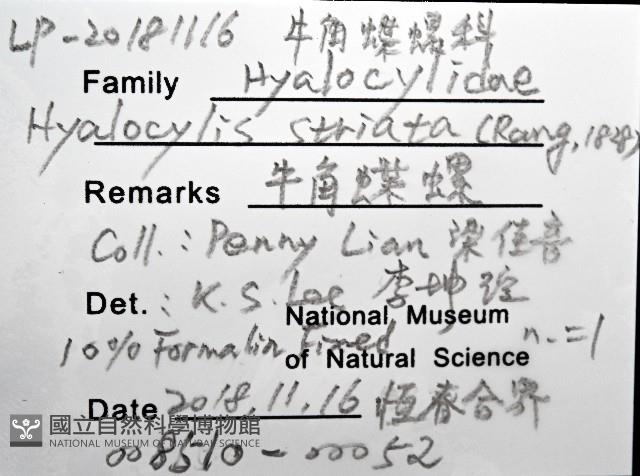 LP-20181116 牛角蝶螺科
Family Hyalocylidae
Hyalocylis striata (Rang, 1828)
Remarks 牛角蝶螺
Coll.: Penny Lian 梁佳音
Det.: K. S. Lee 李坤瑄
National Museum
10% Formalin Fixed n.=1
of Natural Science
Date 2018.11.16 恆春合界
國立自然科學博物館
NATIONAL MUSEUM OF NATURAL SCIENCE
008510-00052